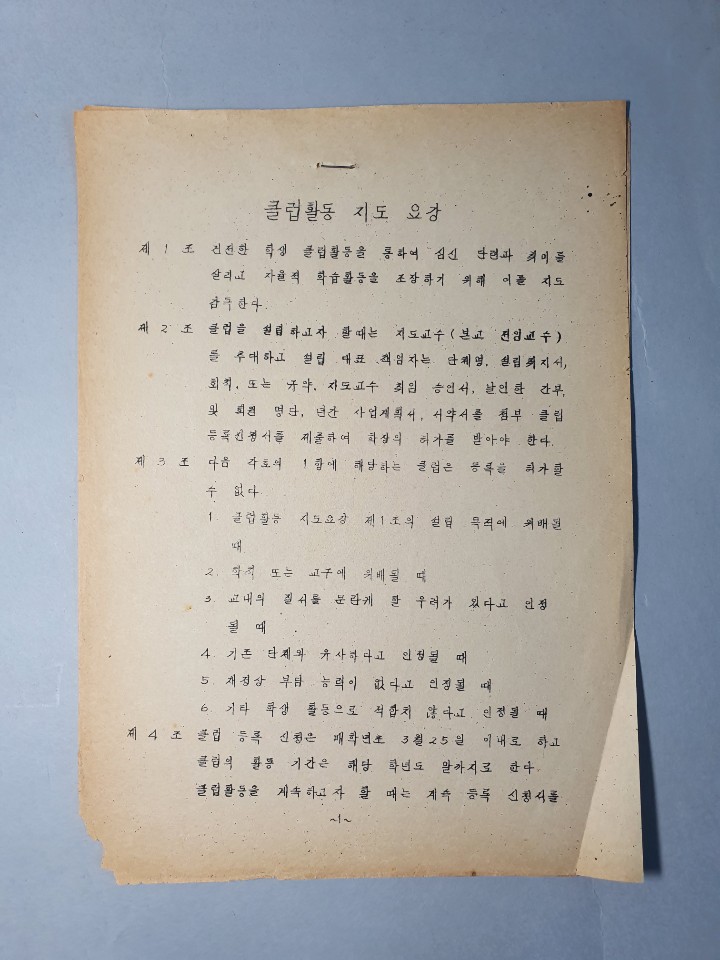 클럽활동 지도 요강
제 1 조 건전한 학생 클럽활동을 통하여 심신 단련과 취미를
살리고 자율적 학습활동을 조장하기 위해 이를 지도
감독한다.
제 2 조 클럽을 설립하고자 할때는 지도교수(본교 전임교수)
를 추대하고 설립 대표 책임자는 단체명, 설립취지서,
회칙, 또는 규약, 지도교수 취임 승인서, 날인한 간부,
및 회원 명단, 년간 사업계획서, 서약서를 첨부 클럽
등록신청서를 제출하여 학장의 허가를 받아야 한다.
제 3 조 다음 각호의 1항에 해당하는 클럽은 등록을 허가할
수 없다.
1. 클럽활동 지도요강 제1조의 설립 목적에 위배될
때
2. 학칙 또는 교규에 위배될 때
3. 교내의 질서를 문란케 할 우려가 있다고 인정
될 때
4. 기존 단체와 유사하다고 인정될 때
5. 재정상 부담 능력이 없다고 인정될 때
6. 기타 학생 활동으로 적합치 않다고 인정될 때
제 4 조 클럽 등록 신청은 매학년초 3월25일 이내로 하고
클럽의 활동 기간은 해당 학년도 말까지로 한다.
클럽활동을 계속하고자 할 때는 계속 등록 신청서를
~1~